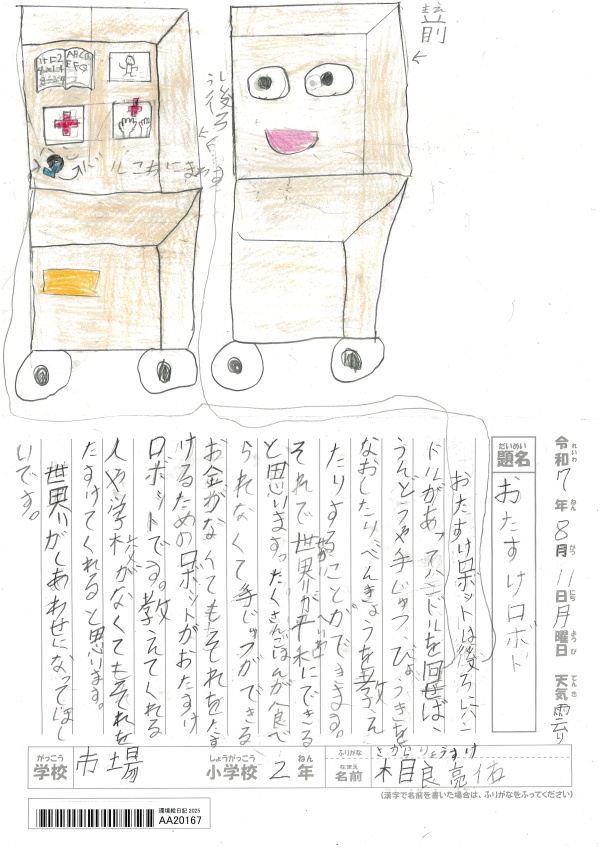 前
後ろ
1+1=2
ABCD
EFG
ハンドルこっちにまわす
令和7年8月11日月曜日 天気 曇り
れいわ ねん がつ にち ようび てんき
だいめい
題名 おたすけロボット
おたすけロボットは後ろにハン
ドルがあってハンドルを回せば、
うんどうや手じゅつ、びょうきを
なおしたりべんきょうを教え
たりすることができます。
それで世界が平和にできる
せかい へいわ
と思います。たくさんごはんが食べ
られなくて手じゅつができる
お金がなくてもそれをたす
けるためのロボットがおたすけ
ロボットです。教えてくれる
人や学校がなくてもそれを
たすけてくれると思います。
世界がしあわせになってほし
いです。
がっこう しょうがっこう ねん
学校 市場 小学校 2年
ふりがな さがらりょうすけ
なまえ
名前 相良亮佑
(漢字で名前を書いた場合は、ふりがなをふってください)
環境絵日記 2025
AA20167